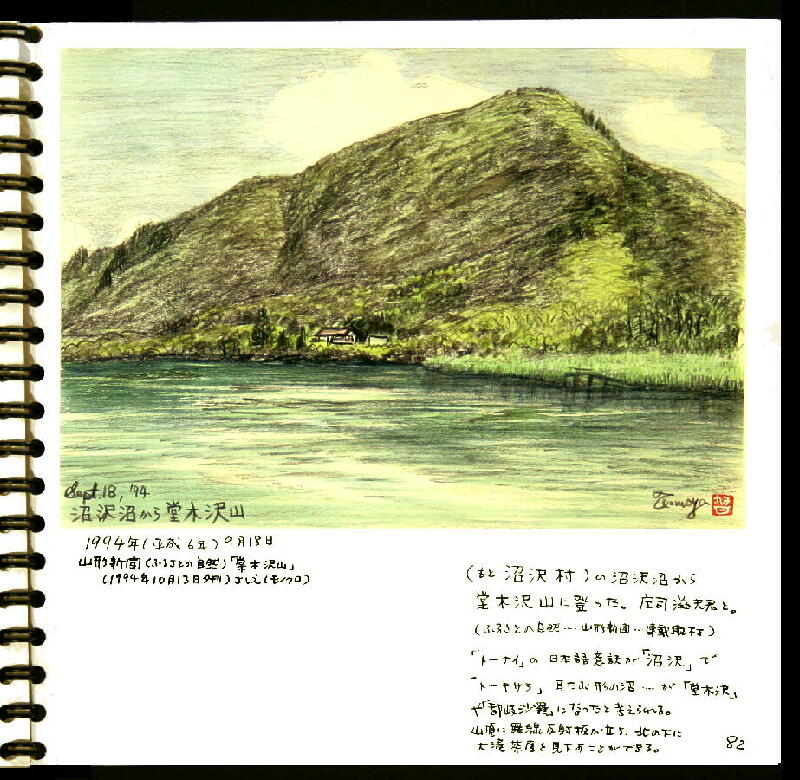 Sept.18,'94
沼沢沼から堂木沢山
Tomoya
1994年(平成6年)9月18日
山形新聞(ふるさとの自然)「堂木沢山」
(1994年10月13日夕刊)さしえ(モノクロ)
(もと沼沢村)の沼沢沼から
堂木沢山に登った。庄司滋夫君と。
(ふるさとの自然…山形新聞…連載取材)
「トーナイ」の日本語意訳が「沼沢」で
「トーキサラ」耳の山形の沼……が「堂木沢」
や「都岐沙羅」になったと考えられる。
山頂に羅線反射板が立ち、北の下に
大滝茶屋を見下すことができる。
82